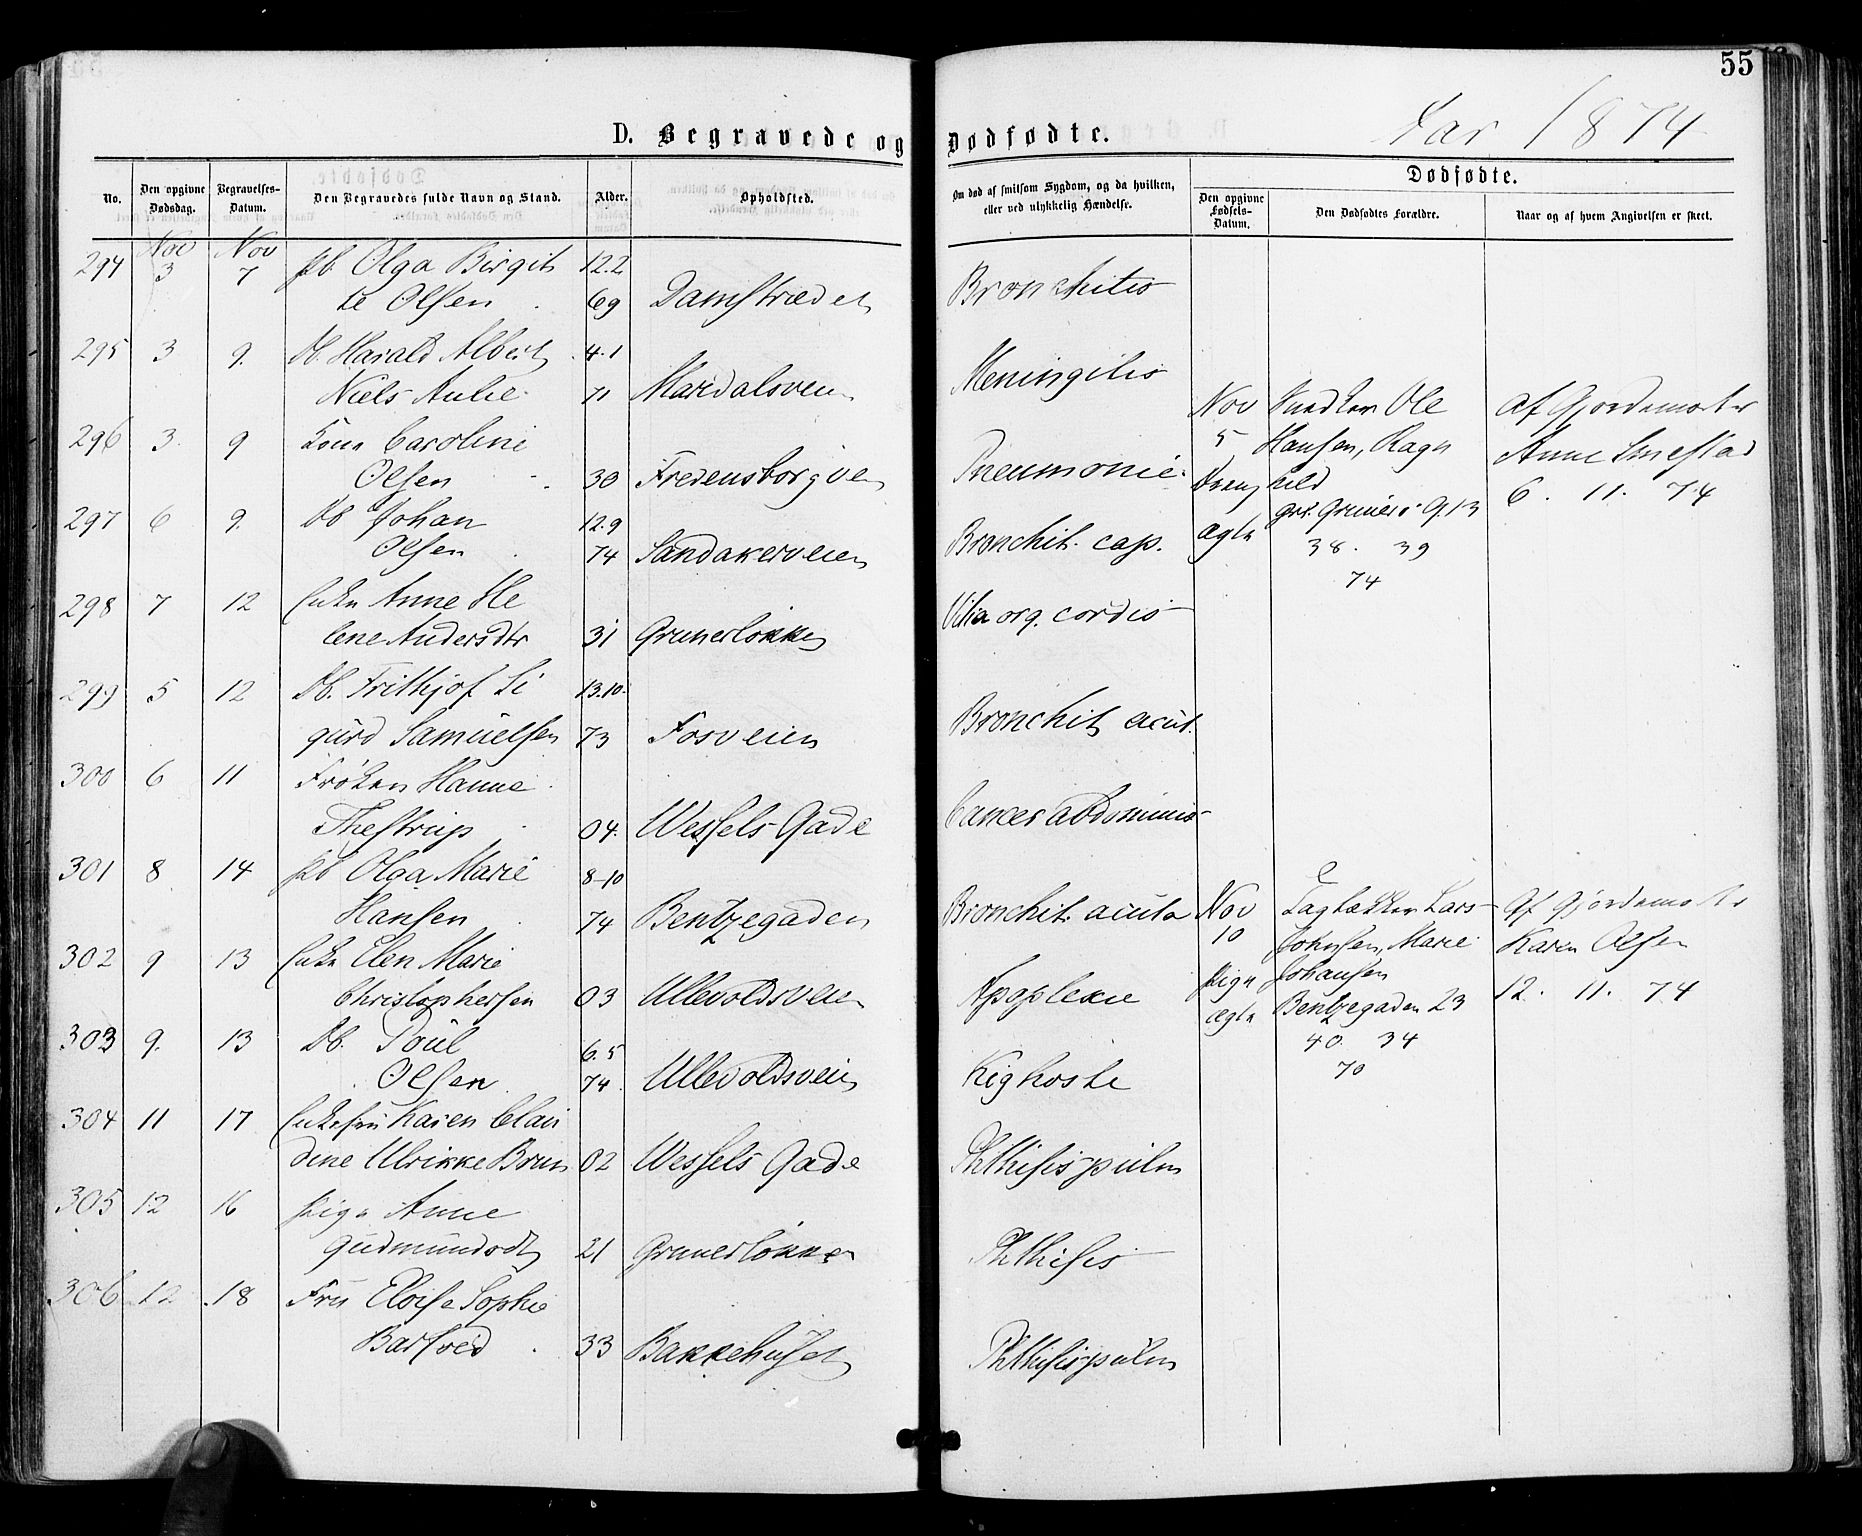 55
D. Begravede og Dødfødte.
Aar 1874
No.
Den opgivne Dødsdag.
Begravelses-Datum.
Den Begravedes fulde Navn og Stand.
Alder.
Opholdsted.
Om død af smitsom Sygdom, og da hvilken, eller ved ulykkelig Hændelse.
Dødfødte.
Den opgivne Fødsels-Datum.
Den Dødfødtes Forældre.
Naar og af hvem Angivelsen er skeet.
Nov Nov
294 3 7 Pb. Olga Birgit 12.2
te Olsen 69 Damstrædet Bronchitis
295 3 9. Db. Harald Albert 4.1
Niels Aulie 71 Maridalsvein Meningitis
296 3. 9 Kone Caroline
Olsen 30 Fredensborgvei Pneumonie
297 6 9. Db Johan 12.9
Olsen 74 Sandakerveien Bronchit. cap.
298 7 12 Enke Anne He
lene Andersdtr 31 Grunerløkken Vitia org. cordis
299 5 12 Db. Frithjof Si 13.10.
gurd Samuelsen 73 Fosveien Bronchit acut.
300 6 11 Frøken Hanne
Thestrup 04. Wessels Gade Cancer abdominis
301 8 14 Pb Olga Marie 8-10
Hansen 74 Bentzegaden Bronchit. acuta
302 9 13 Enke Elen Marie
Christophersen 03 Ullevoldsvein Apoplexie
303 9. 13 Db. Poul 6.5
Olsen 74. Ullevoldsvein Kighoste
304 11 17 Enkefru Karen Clau
dine Ulrikke Brun 02 Wessels Gade Phthisis pulm
305 12 16 Pige Anne
Gudmundsdt 21 Grunerløkken Phthisis
306 12 18 Fru Eloise Sophie
Barfoed 33 Bakkehuset Phthisis pulm
Nov Snedker Ole af Gjordemoder
5 Hansen, Ragn Anne Smestad
Dreng hild 6. 11. 74
ægte Grüners G. 13
38. 39
74
Nov Lars Af Gjordemoder
10 Johnsen, Marie Karen Olsen
Pige Johansen 12. 11. 74
ægte Bentzegaden 23
40. 34
70